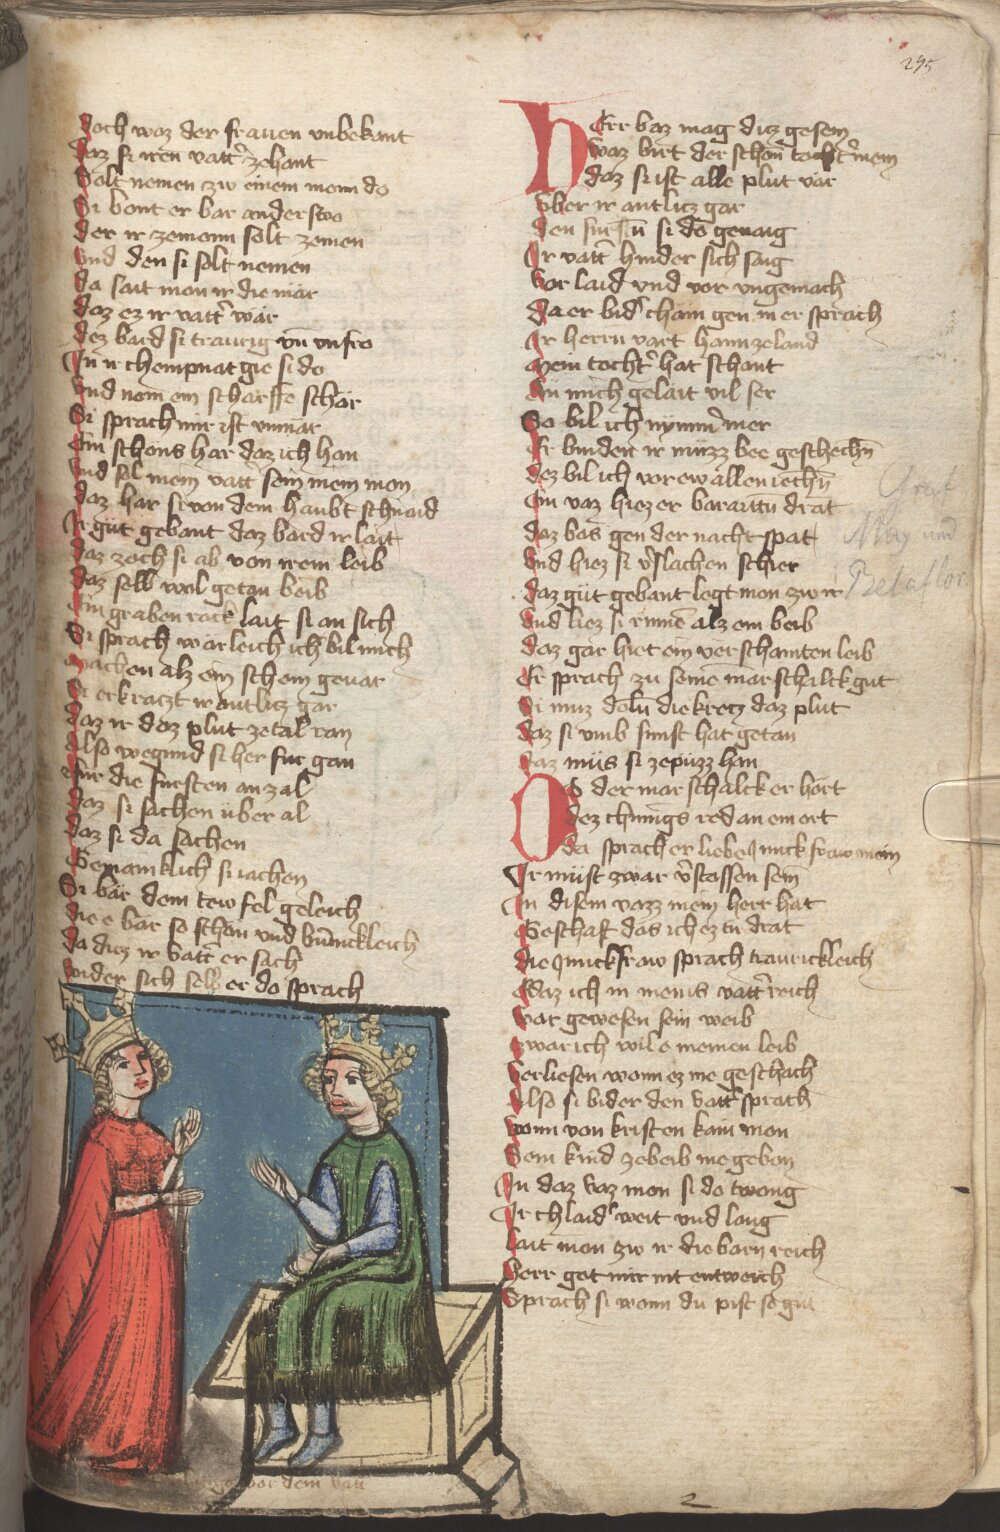 295
doch waz der frauen vnbekant
daz si iren vatt̉ zehant
Solt nemen zw einem mom do
Si bont er bar anderswo
der ir zemonn solt zemen
vnd den si solt nemen
da sait mon ir die mär
daz ez ir vatt̉ wär
dez bard si traurig vn̄ vnfro
In ir chempnat gie si do
vnd nom ein scharffe schär
Si sprach mir ist vnmär
Ein schons har daz ich han
vnd sol mein vatt̉ sein mein mon
daz har si von dem haubt schnaid
Ir gut gebant daz bard ir lait
daz zoch si ab von irem leib
daz selb wol getan beib
Ein graben rock lait si an sich
Si sprach wärleich ich bil mich
machen alz ein schem geuar
Si erkraczt ir antlicz gar
daz ir daz plut zetal ran
Also wegund si her fur gan
fur die fursten an zal
daz si sachen über al
daz si da sachen
Gemainklich si iachen
Si bär dem tewfel geleich
die e bar so schön vnd bunnickleich
da dicz ir vatt̉ er sach
wider sich selb er do sprach
HErr baz mag dicz gesein
waz birt der schon tocht̉ mein
daz si ist alle plut var
vber ir antlicz gar
den fursten si do genaig
Ir vatt̉ hinder sich saig
vor laid vnd vor vngemach
da er bid̉ cham gen in er sprach
Ir herrn vart haim ze land
Mein tocht̉ hat schant
An mich gelait vil ser
So bil ich nymm̉ mer
Er binden ir muzz bee geschechn̄
dez bil ich vor ew allen iechn̄
Ein vaz hiez er baraittn̄ drat
daz bas gen der nacht spat
vnd hiez si v̉slachen schier
daz gut gebant legt mon zw ir
vnd liez si rinne alz ein beib
daz gar hiet ein verschamten leib
Er sprach zu seine marschalck gut
Si muz doln̄ die krecz daz plut
daz si vmb sunst hat getan
daz müs si ze püzz han
DO der marschalck er hört
dez chunigs red an em ort
da sprach er liebe Junckfraw mein
Ir müst zwar v̉stossen sein
In disem vazz mein herr hat
Geschaft das ich ez tu drat
die Junckfraw sprach traurickleich
E daz ich in meins vatt̉ reich
war gewesen sein weib
zwar ich wil e meinen leib
verliesen wonn ez me geschach
Also si bider den vatt̉ sprach
wann von kristen kam mon
dem kind ze beib me gebon
In daz vaz mon si do twong
Ir chlaid̉ weit vnd lang
lait mon zw ir die barn reich
herr got mir nit entweich
Sprach si wonn du pist so gut
Graf
May und
Belaflor
vor dem vatt
2